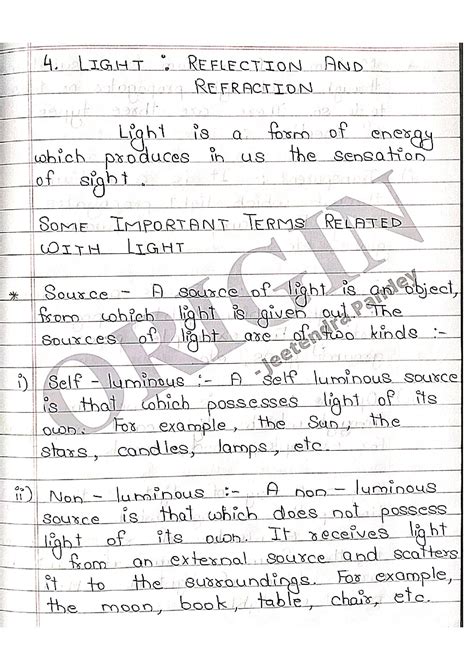 4. LIGHT : REFLECTION AND
REFRACTION
Light is a form of energy
which produces in us the sensation
of sight.
SOME IMPORTANT TERMS RELATED
WITH LIGHT
* Source - A source of light is an object,
from which light is given out. The
sources of light are of two kinds :-
i) Self - luminous :- A self luminous source
is that which possesses light of its
own. For example, the Sun, the
stars, candles, lamps, etc.
ii) Non - luminous :- A non - luminous
source is that which does not possess
light of its own. It receives light
from an external source and scatters
it to the surroundings. For example,
the moon, book, table, chair, etc.
ORIGIN
-Jeetendra Pandey